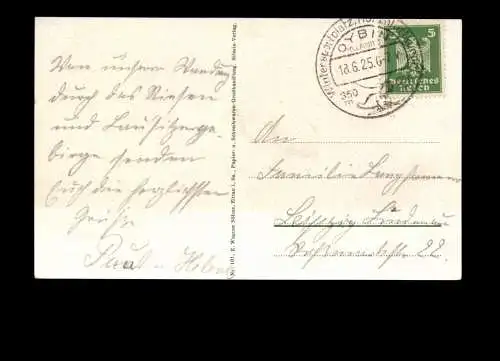 Von unserer Wandrung
durch das Riesen
und Lausitzerge-
birge senden
Euch die herzlichsten
Grüße
Paul u. Helene
No. 101. F. Wagner Söhne, Zittau i. Sa., Papier- u. Schreibwaren-Großhandlung. Söhnle-Verlag.
OYBIN
18.6.25.6
350
5
Deutsches
Reich
An
Familie
Leipzig Lindenau
22.